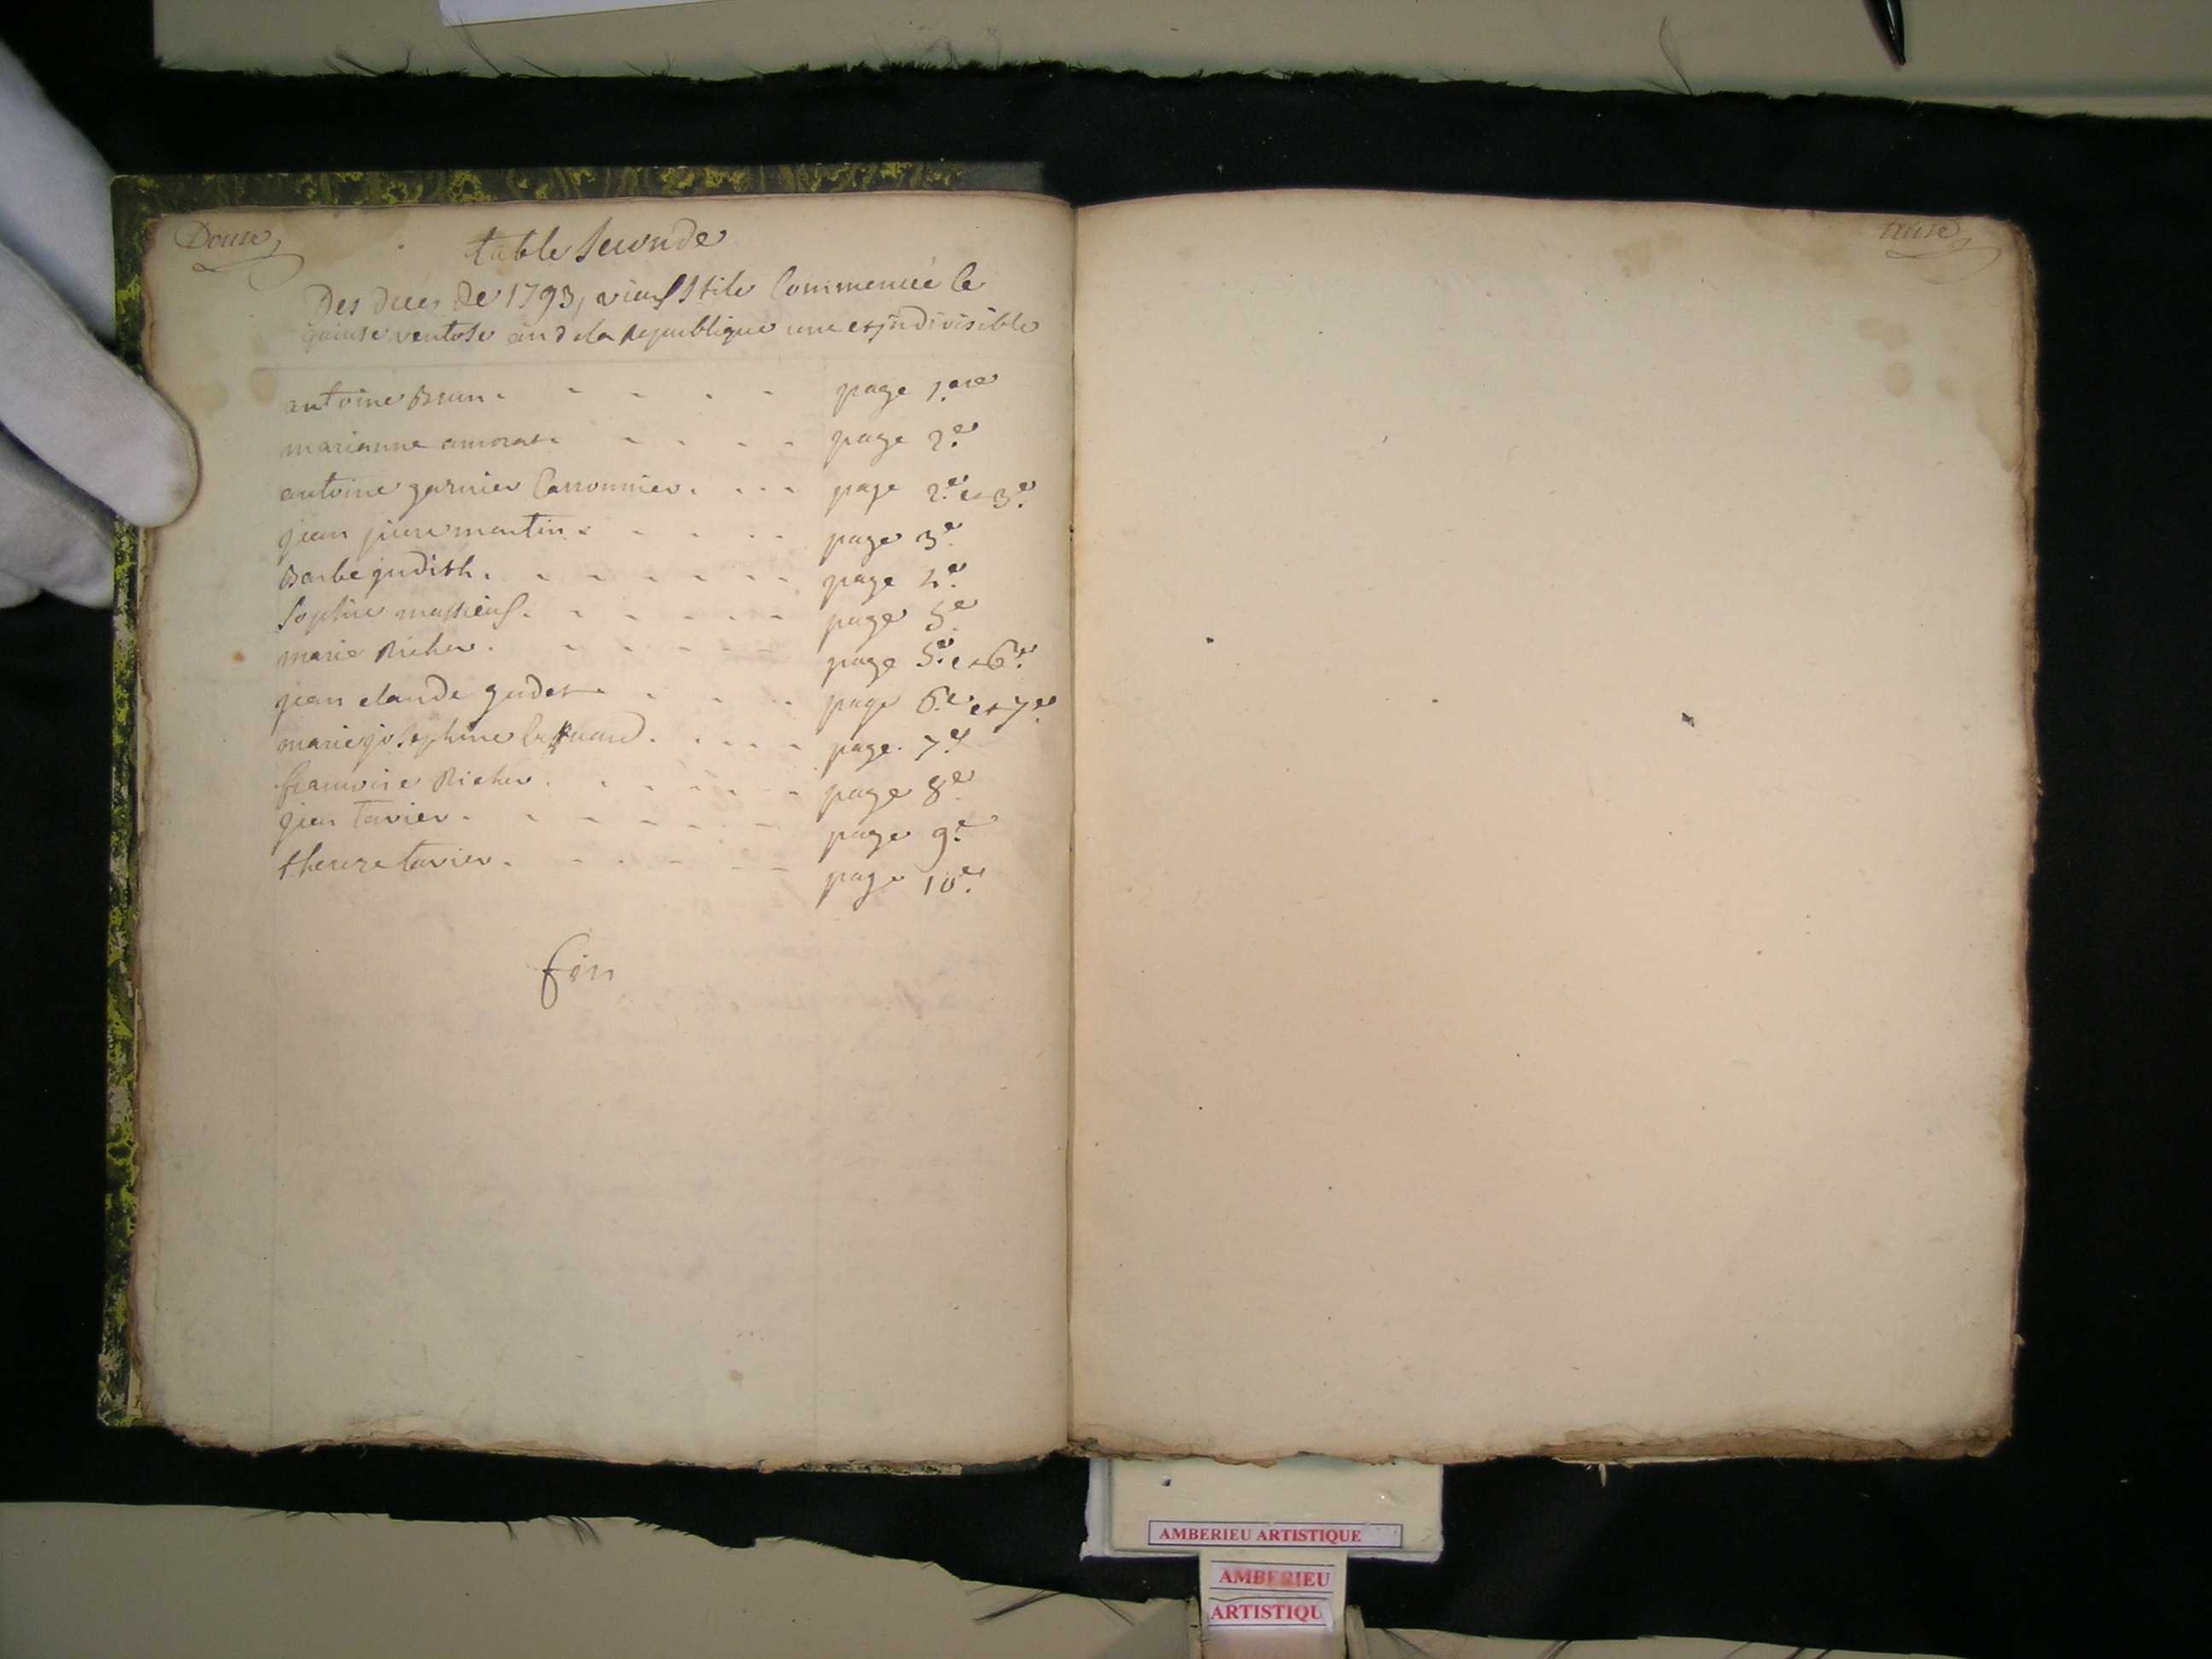 Douze
table seconde
Des deces de 1793, vieux stile Commencée le
quinse ventose an 2 de la Republique une et indivisible
antoine Brun . - - . - page 1.ere
marianne amorat . - . - - page 2.e
antoine garnier Cassonnier . . . - page 2.e et 3.e
jean piere martin . - . . - page 3.e
Barbe judith . - - - - - - page 4.e
Sophie massieuf . - - - - - page 5.e
marie Richer . - - - - - page 5.e et 6.e
jean claude gudet . - . - page 6.e et 7.e
marie josephine . . . . - page 7.e
francoise Richer . . . - . - page 8.e
jean tavier . - - - - - - page 9.e
thereze tavier . - . - - - page 10.e
fin
treise
AMBERIEU ARTISTIQUE
AMBERIEU
ARTISTIQU